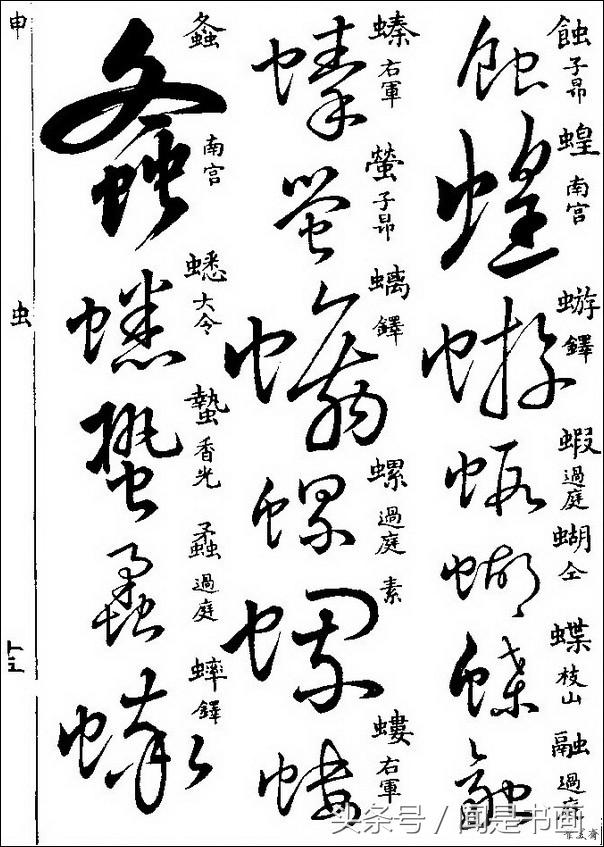 蝕 子昂
蝗 南宮
蝣 鐸
蝦 過庭
蝴 仝
蝶 枝山
融 過庭
螓 右軍
螢 子昂
螭 鐸
螺 過庭
素
螻 右軍
螽 南宮
蟋 大令
蟄 香光
蟊 過庭
蟀 鐸
申
虫
头条号 / 闻是书画